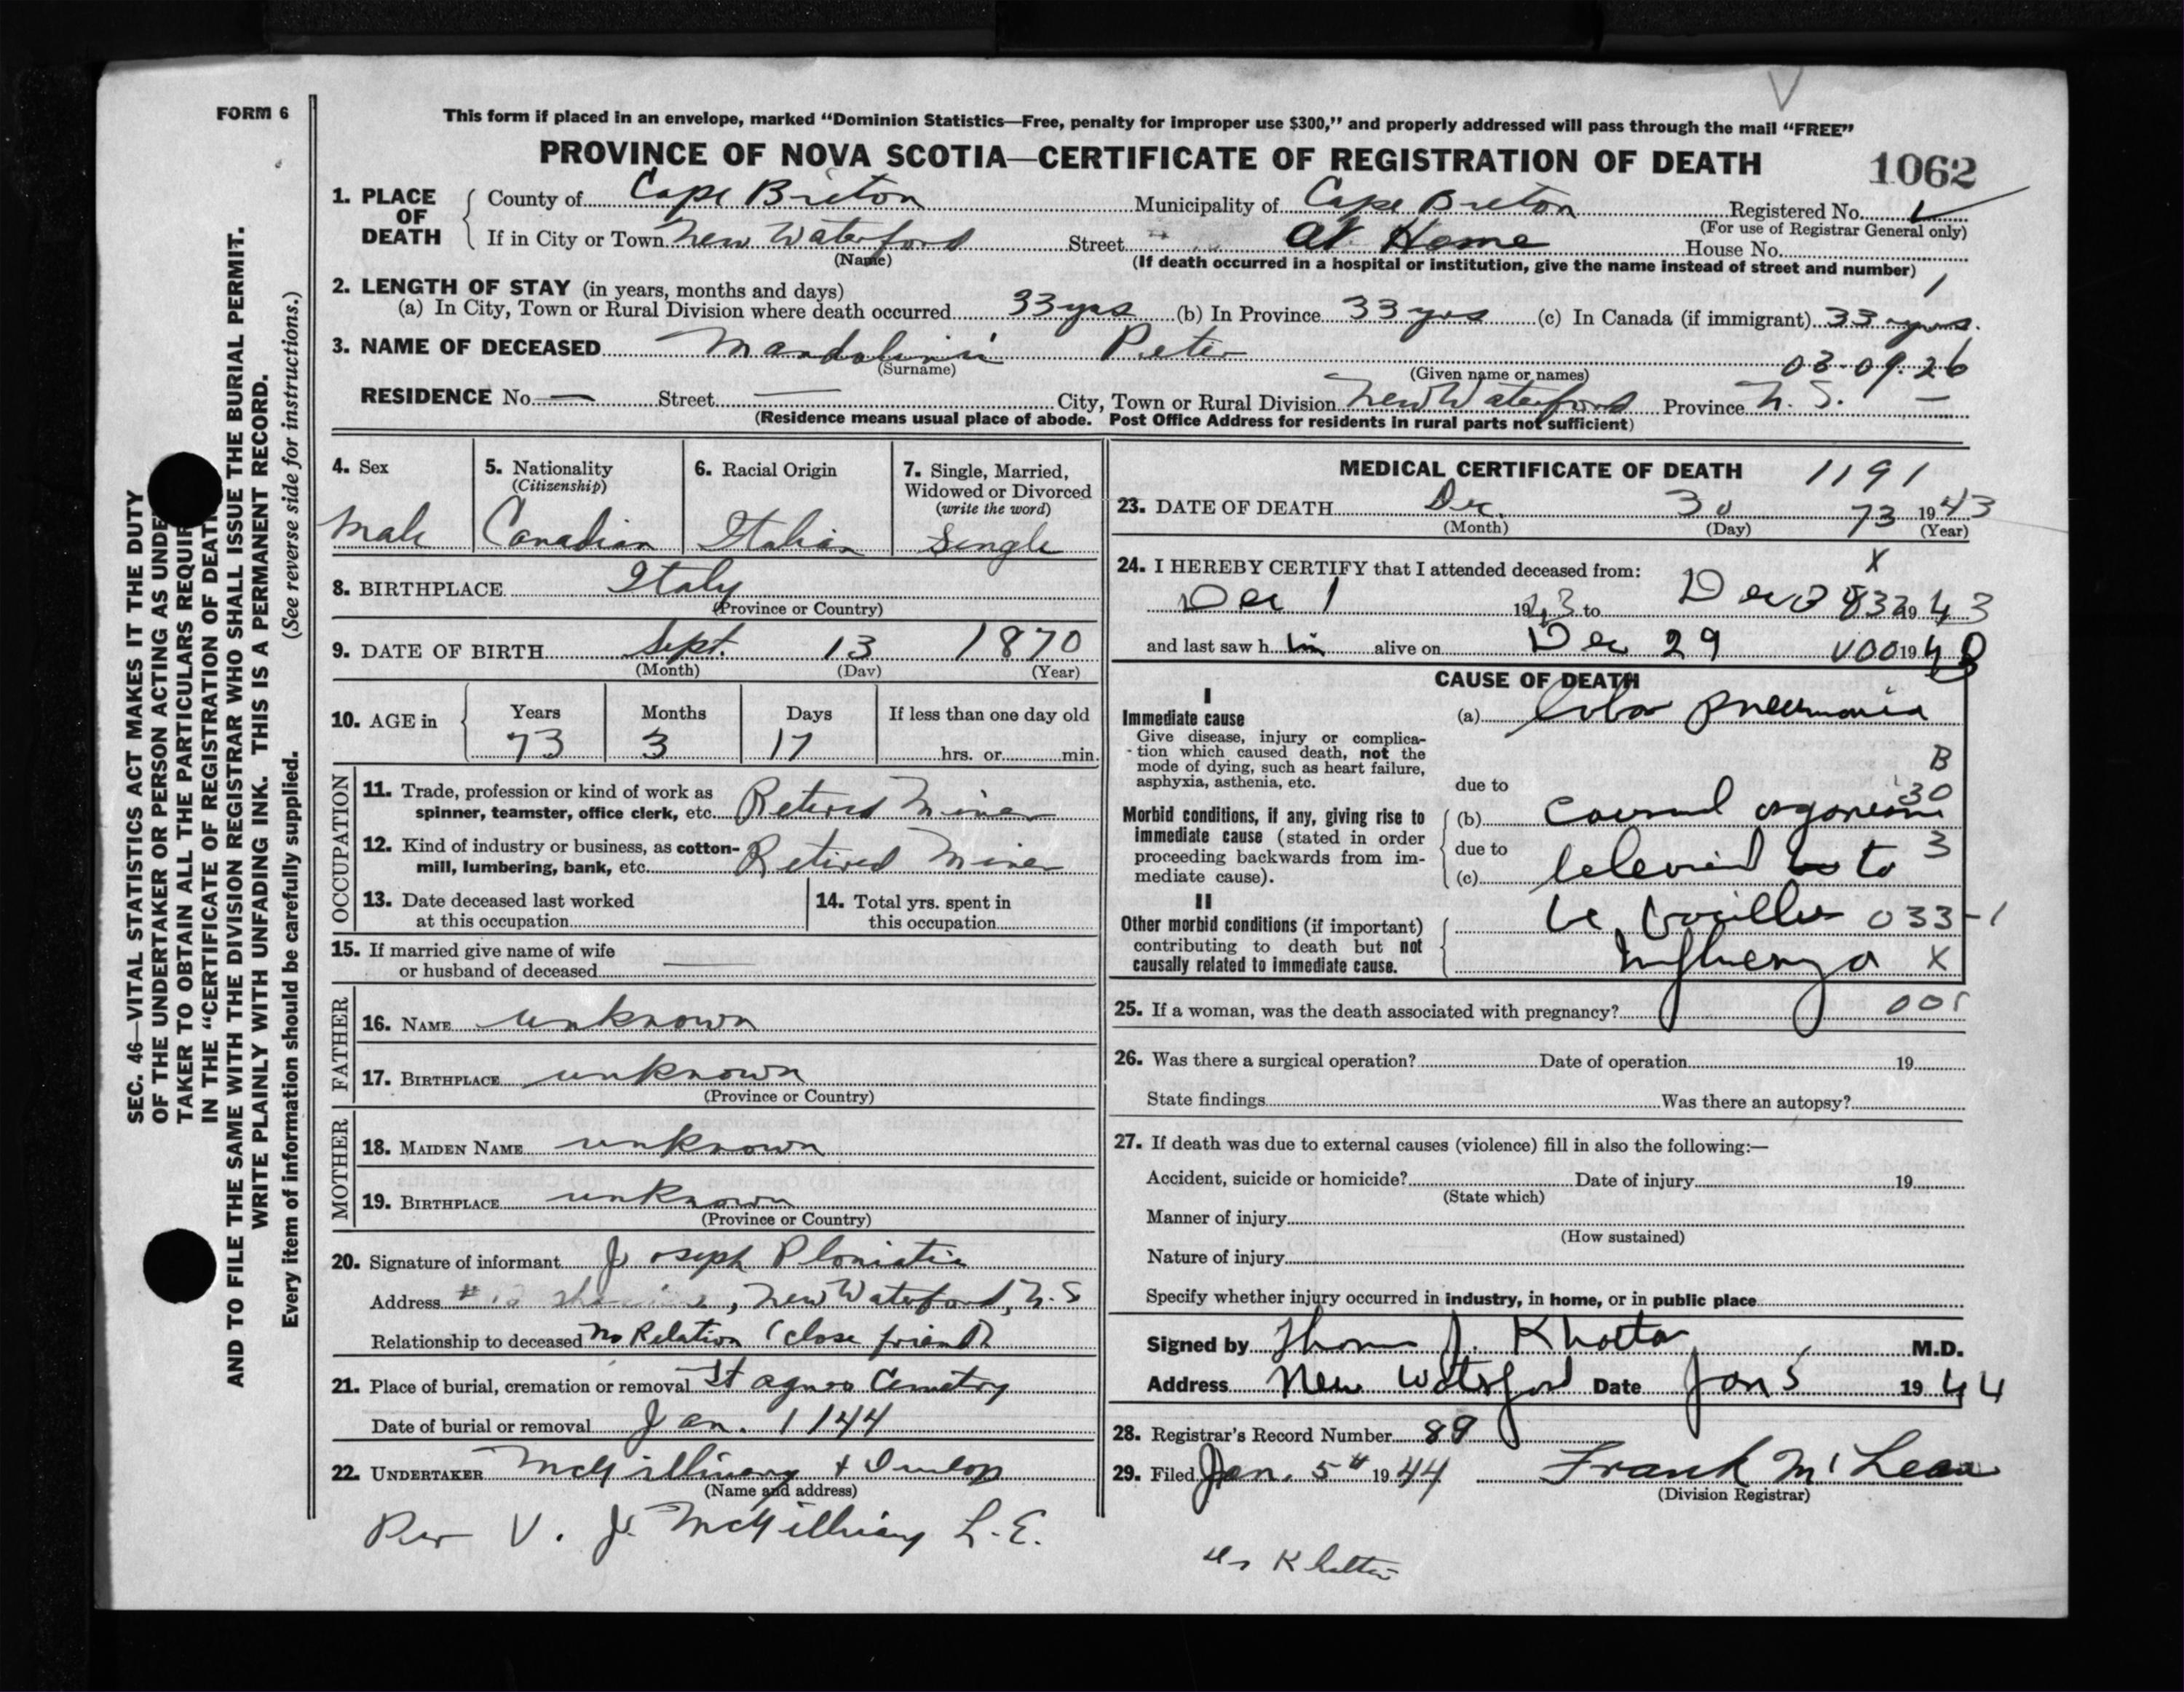 FORM 6
This form if placed in an envelope, marked "Dominion Statistics—Free, penalty for improper use $300," and properly addressed will pass through the mail "FREE"
PROVINCE OF NOVA SCOTIA—CERTIFICATE OF REGISTRATION OF DEATH 1062
1. PLACE OF DEATH
County of Cape Breton Municipality of Cape Breton Registered No.
(For use of Registrar General only)
If in City or Town New Waterford Street At Home House No.
(Name) (If death occurred in a hospital or institution, give the name instead of street and number)
2. LENGTH OF STAY (in years, months and days)
(a) In City, Town or Rural Division where death occurred 33 yrs (b) In Province 33 yrs (c) In Canada (if immigrant) 33 yrs.
3. NAME OF DECEASED Peter 03-09-26
(Surname) (Given name or names)
RESIDENCE No. — Street — City, Town or Rural Division New Waterford Province N. S. —
(Residence means usual place of abode. Post Office Address for residents in rural parts not sufficient)
4. Sex
Male
5. Nationality
(Citizenship)
Canadian
6. Racial Origin
Italian
7. Single, Married,
Widowed or Divorced
(write the word)
Single
8. BIRTHPLACE Italy
(Province or Country)
9. DATE OF BIRTH Sept. 13 1870
(Month) (Day) (Year)
10. AGE in
Years Months Days If less than one day old
73 3 17 hrs. or min.
OCCUPATION
11. Trade, profession or kind of work as
spinner, teamster, office clerk, etc. Retired Miner
12. Kind of industry or business, as cotton-
mill, lumbering, bank, etc. Retired Miner
13. Date deceased last worked
at this occupation
14. Total yrs. spent in
this occupation
15. If married give name of wife
or husband of deceased —
FATHER
16. NAME unknown
17. BIRTHPLACE unknown
(Province or Country)
MOTHER
18. MAIDEN NAME unknown
19. BIRTHPLACE unknown
(Province or Country)
20. Signature of informant Joseph
Address New Waterford, N. S
Relationship to deceased No Relation (close friend)
21. Place of burial, cremation or removal St Agnes Cemetry
Date of burial or removal Jan. 1 / 44
22. UNDERTAKER McGillivary + Dunlop
(Name and address)
Per V. J. McGillivary L. E.
MEDICAL CERTIFICATE OF DEATH 1191
23. DATE OF DEATH Dec. 30 73 1943
(Month) (Day) (Year)
X
24. I HEREBY CERTIFY that I attended deceased from:
Dec 1 1943 to Dec 1943
and last saw h im alive on Dec 29 V00 1943
CAUSE OF DEATH
I
Immediate cause
Give disease, injury or complica-
tion which caused death, not the
mode of dying, such as heart failure,
asphyxia, asthenia, etc.
(a) Lobar pneumonia
B
due to
30
Morbid conditions, if any, giving rise to
immediate cause (stated in order
proceeding backwards from im-
mediate cause).
(b) causal organism
due to 3
(c) to
II
Other morbid conditions (if important)
contributing to death but not
causally related to immediate cause.
bacillus 033-1
Influenza X
25. If a woman, was the death associated with pregnancy? 005
26. Was there a surgical operation? Date of operation 19
State findings Was there an autopsy?
27. If death was due to external causes (violence) fill in also the following:—
Accident, suicide or homicide? Date of injury 19
(State which)
Manner of injury
(How sustained)
Nature of injury
Specify whether injury occurred in industry, in home, or in public place
Signed by Thomas J. Khattar M.D.
Address New Waterford Date Jan 5 1944
28. Registrar's Record Number 89
29. Filed Jan. 5th 1944 Frank McLean
(Division Registrar)
Dr Khattar
SEC. 46—VITAL STATISTICS ACT MAKES IT THE DUTY
OF THE UNDERTAKER OR PERSON ACTING AS UNDER
TAKER TO OBTAIN ALL THE PARTICULARS REQUIR
IN THE "CERTIFICATE OF REGISTRATION OF DEATH
AND TO FILE THE SAME WITH THE DIVISION REGISTRAR WHO SHALL ISSUE THE BURIAL PERMIT.
WRITE PLAINLY WITH UNFADING INK. THIS IS A PERMANENT RECORD.
Every item of information should be carefully supplied. (See reverse side for instructions.)